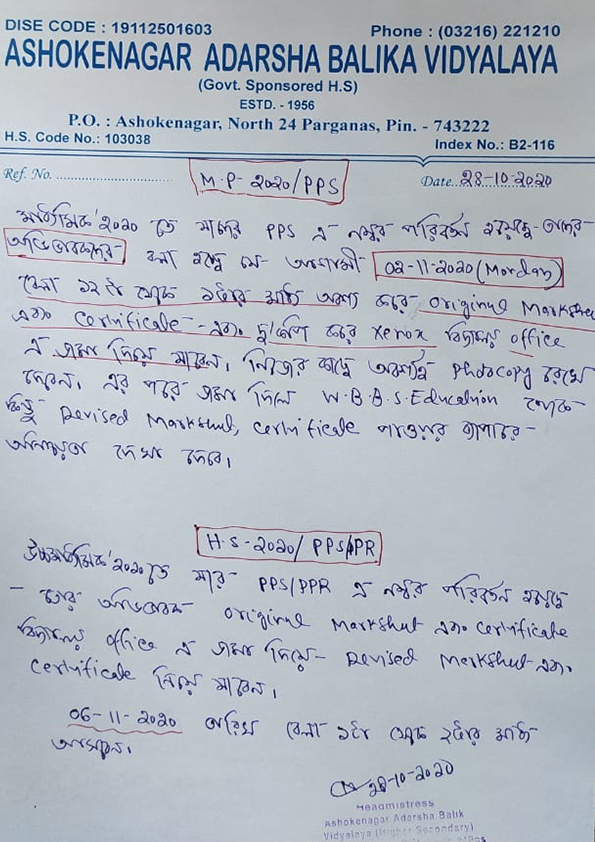 DISE CODE : 19112501603 Phone : (03216) 221210
ASHOKENAGAR ADARSHA BALIKA VIDYALAYA
(Govt. Sponsored H.S)
ESTD. - 1956
P.O. : Ashokenagar, North 24 Parganas, Pin. - 743222
H.S. Code No.: 103038 Index No.: B2-116
Ref. No. M.P-2020/PPS Date. 28-10-2020
মাধ্যমিক'২০২০ তে যাদের PPS এ নম্বর পরিবর্তন হয়েছে তাদের
অভিভাবকদের বলা হচ্ছে যে আগামী 02-11-2020 (Monday)
বেলা ১২টা থেকে ১টার মধ্যে অবশ্য করে original Marksheet
এবং Certificate - এবং দু'কপি করে xerox বিদ্যালয় office
এ জমা দিয়ে যাবেন। নিজের কাছে অবশ্যই photocopy রেখে
দেবেন। এর পরে জমা দিলে W.B.B.S.Education থেকে
কিন্তু Revised Marksheet, Certificate পাওয়ার ব্যাপারে-
অনিশ্চয়তা দেখা দেবে।
H.S-2020/ PPS/PPR
উচ্চমাধ্যমিক'২০২০ তে যার PPS/PPR এ নম্বর পরিবর্তন হয়েছে
- তার অভিভাবক original Marksheet এবং Certificate
বিদ্যালয় office এ জমা দিয়ে- Revised Marksheet এবং
Certificate নিয়ে যাবেন।
06-11-2020 তারিখ বেলা ১টা থেকে ২টার মধ্যে
আসবেন।
28-10-2020
Headmistress
Ashokenagar Adarsha Balik
Vidyalaya (Higher Secondary)